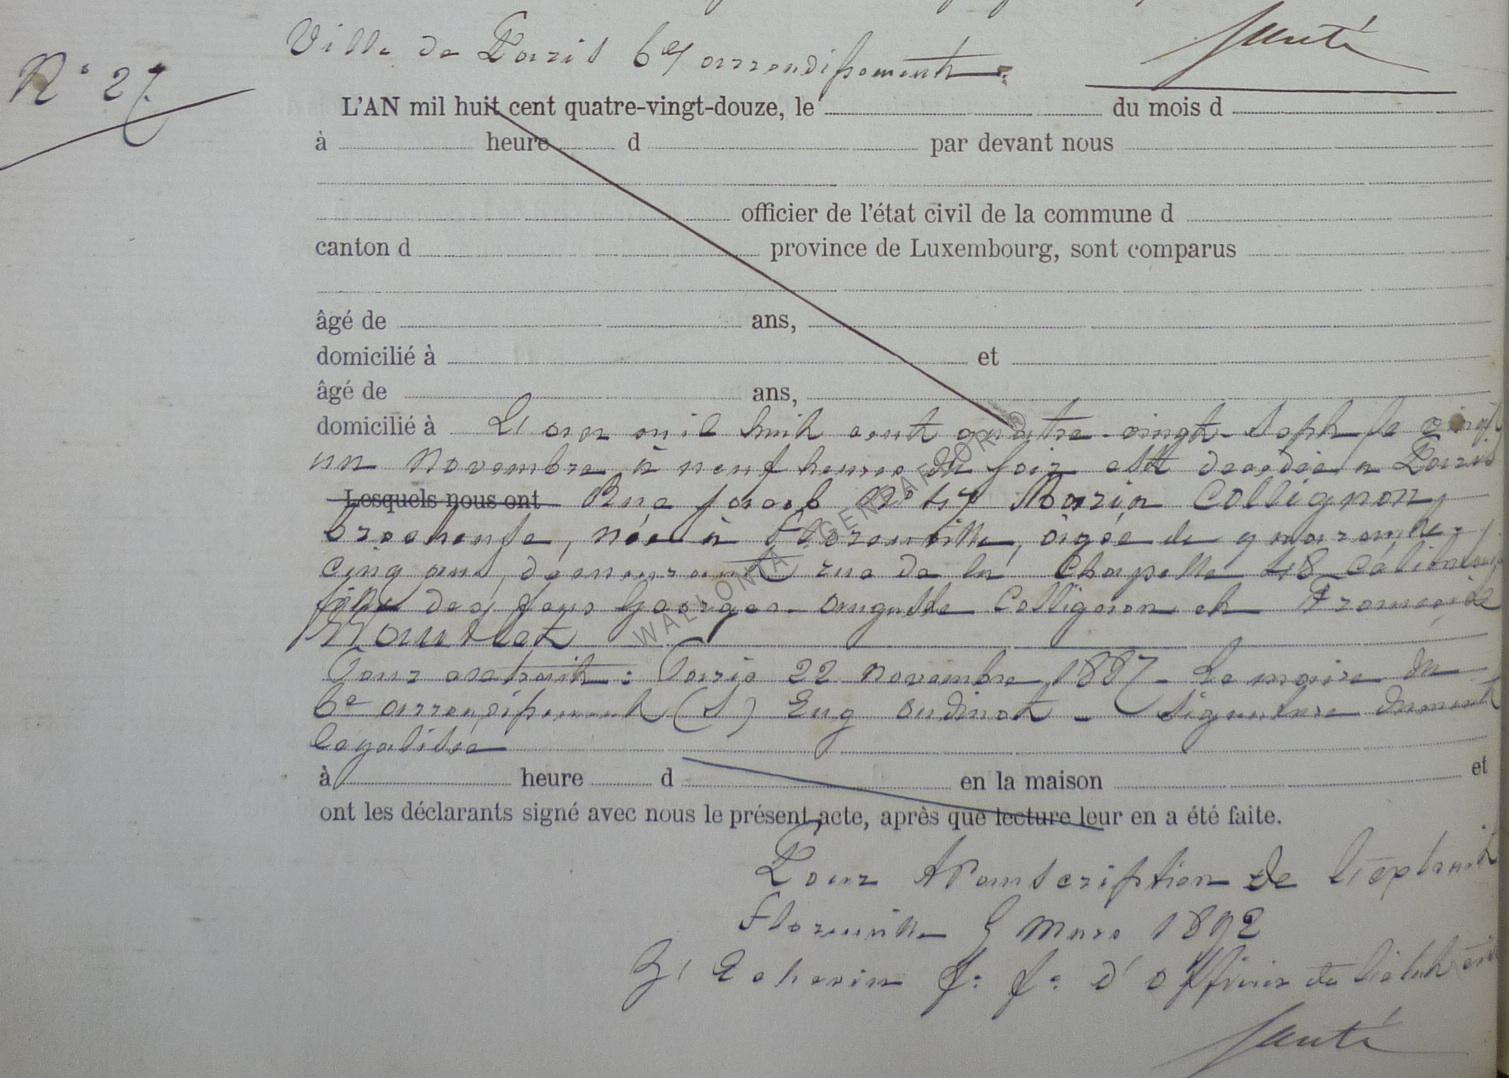 Ville de Paris 6e arrondissement
Santé
N° 27
L'AN mil huit cent quatre-vingt-douze, le du mois d
à heure d par devant nous
officier de l'état civil de la commune d
canton d province de Luxembourg, sont comparus
âgé de ans,
domicilié à et
âgé de ans,
domicilié à L'an mil huit cent quatre-vingt-Sept le vingt
un novembre à neuf heures du soir est décédée à Paris
Lesquels nous ont Rue Jacob n° 47 Marie Collignon,
brocheuse, née à Florenville, âgée de quarante-
cinq ans, demeurant rue de la Chapelle 48 célibataire
fille des feus Georges Auguste Collignon et Françoise
Pour extrait : Paris 22 novembre 1887 - Le maire du
6e arrondissement (S) Eug Oudinot - Signature dument
légalisée
à heure d en la maison et
ont les déclarants signé avec nous le présent acte, après que lecture leur en a été faite.
Pour transcription de l'extrait
Florenville 5 mars 1892
L'Echevin f. f. d'officier de l'état civil
Santé
WALLONIA GENEAFLOR©